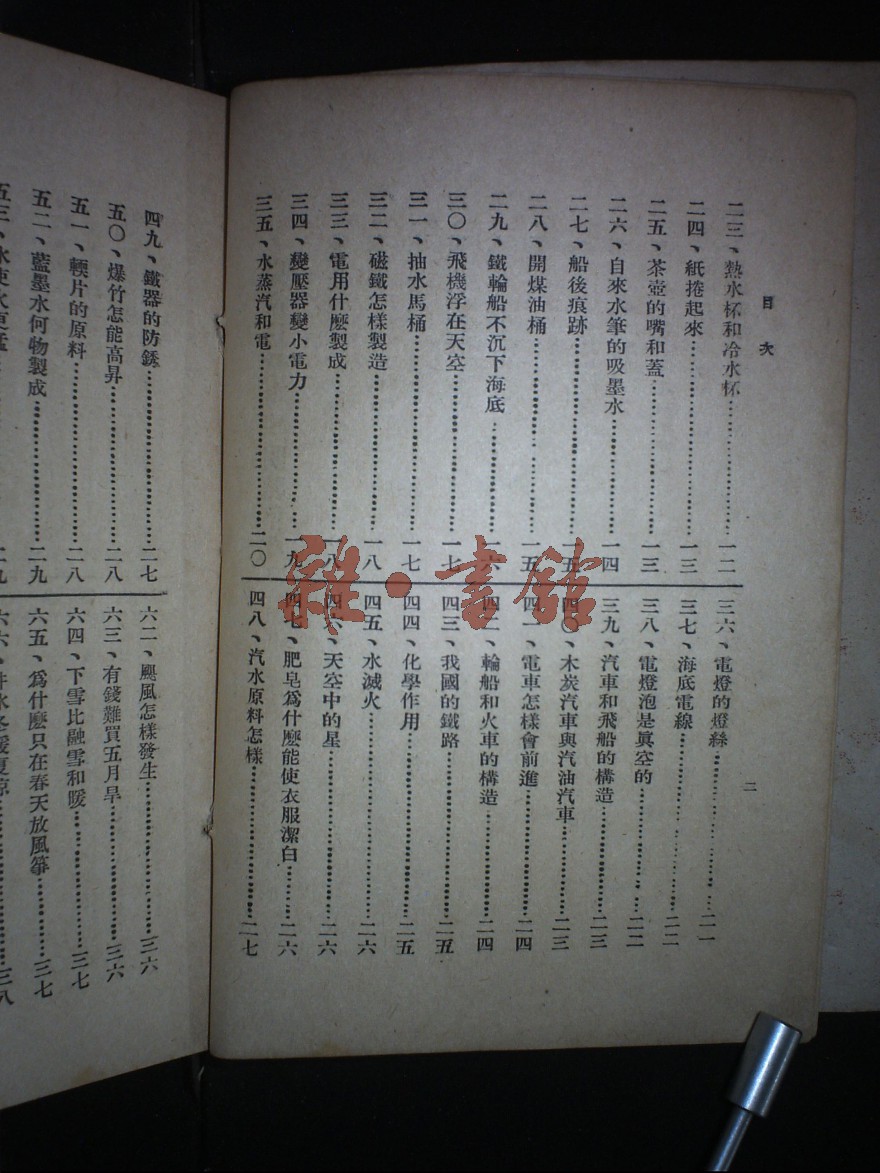 目次
二三、熱水杯和冷水杯……一二
二四、紙捲起來……一三
二五、茶壺的嘴和蓋……一三
二六、自來水筆的吸墨水……一四
二七、船後痕跡……一五
二八、開煤油桶……一五
二九、鐵輪船不沉下海底……一六
三〇、飛機浮在天空……一七
三一、抽水馬桶……一七
三二、磁鐵怎樣製造……一八
三三、電用什麼製成……一八
三四、變壓器變小電力……一九
三五、水蒸汽和電……二〇
三六、電燈的燈絲……二一
三七、海底電線……二二
三八、電燈泡是眞空的……二二
三九、汽車和飛船的構造……二三
四〇、木炭汽車與汽油汽車……二三
四一、電車怎樣會前進……二四
四二、輪船和火車的構造……二四
四三、我國的鐵路……二五
四四、化學作用……二五
四五、水滅火……二六
四六、天空中的星……二六
四七、肥皂爲什麼能使衣服潔白……二六
四八、汽水原料怎樣……二七
二
四九、鐵器的防銹……二七
五〇、爆竹怎能高昇……二八
五一、輭片的原料……二八
五二、藍墨水何物製成……二九
五三、水使火更猛……二九
六二、颶風怎樣發生……三六
六三、有錢難買五月旱……三六
六四、下雪比融雪和暖……三七
六五、爲什麼只在春天放風箏……三七
六六、井水冬暖夏涼……三八
雜·書館